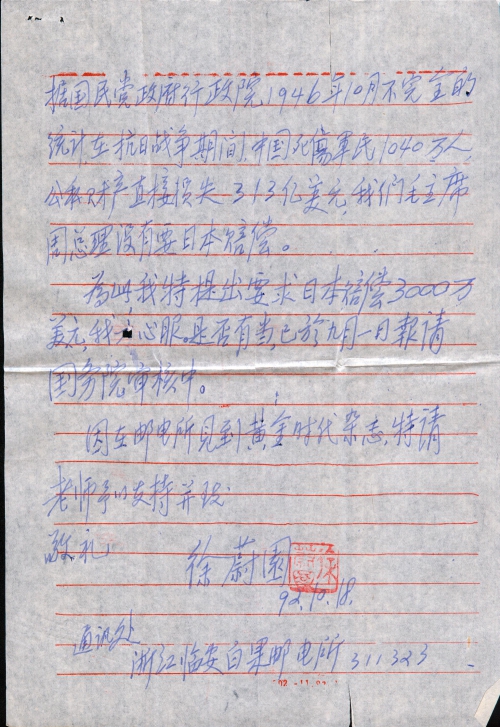 据国民党政府行政院1946年10月不完全的
统计在抗日战争期间,中国死傷軍民1040万人,
公私财产直接损失313亿美元,我们毛主席
周总理没有要日本賠償。
為此我特提出要求日本賠償3000万
美元,我 心服。是否有当,已於九月一日報请
国务院审核中。
因在邮电所见到黄金时代杂志,特请
老师予以支持并致
敬礼
徐蔚園
92.10.18.
通讯处
浙江临安白果邮电所311323